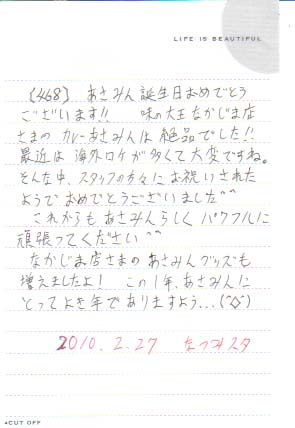 LIFE IS BEAUTIFUL
〔468〕 あさみん誕生日おめでとう
ございます!! 味の大王なかじま店
さまの カレーあさみんは 絶品でした!!
最近は 海外ロケが多くて大変ですね。
そんな中、スタッフの方々に お祝いされた
ようで おめでとうございました^^
これからも あさみんらしく パワフルに
頑張ってください^^
なかじま店さまの あさみんグッズも
増えましたよ! この1年、あさみんに
とってよき年でありますよう...(^◇^)
2010.2.27 なつみスタ
◂CUT OFF